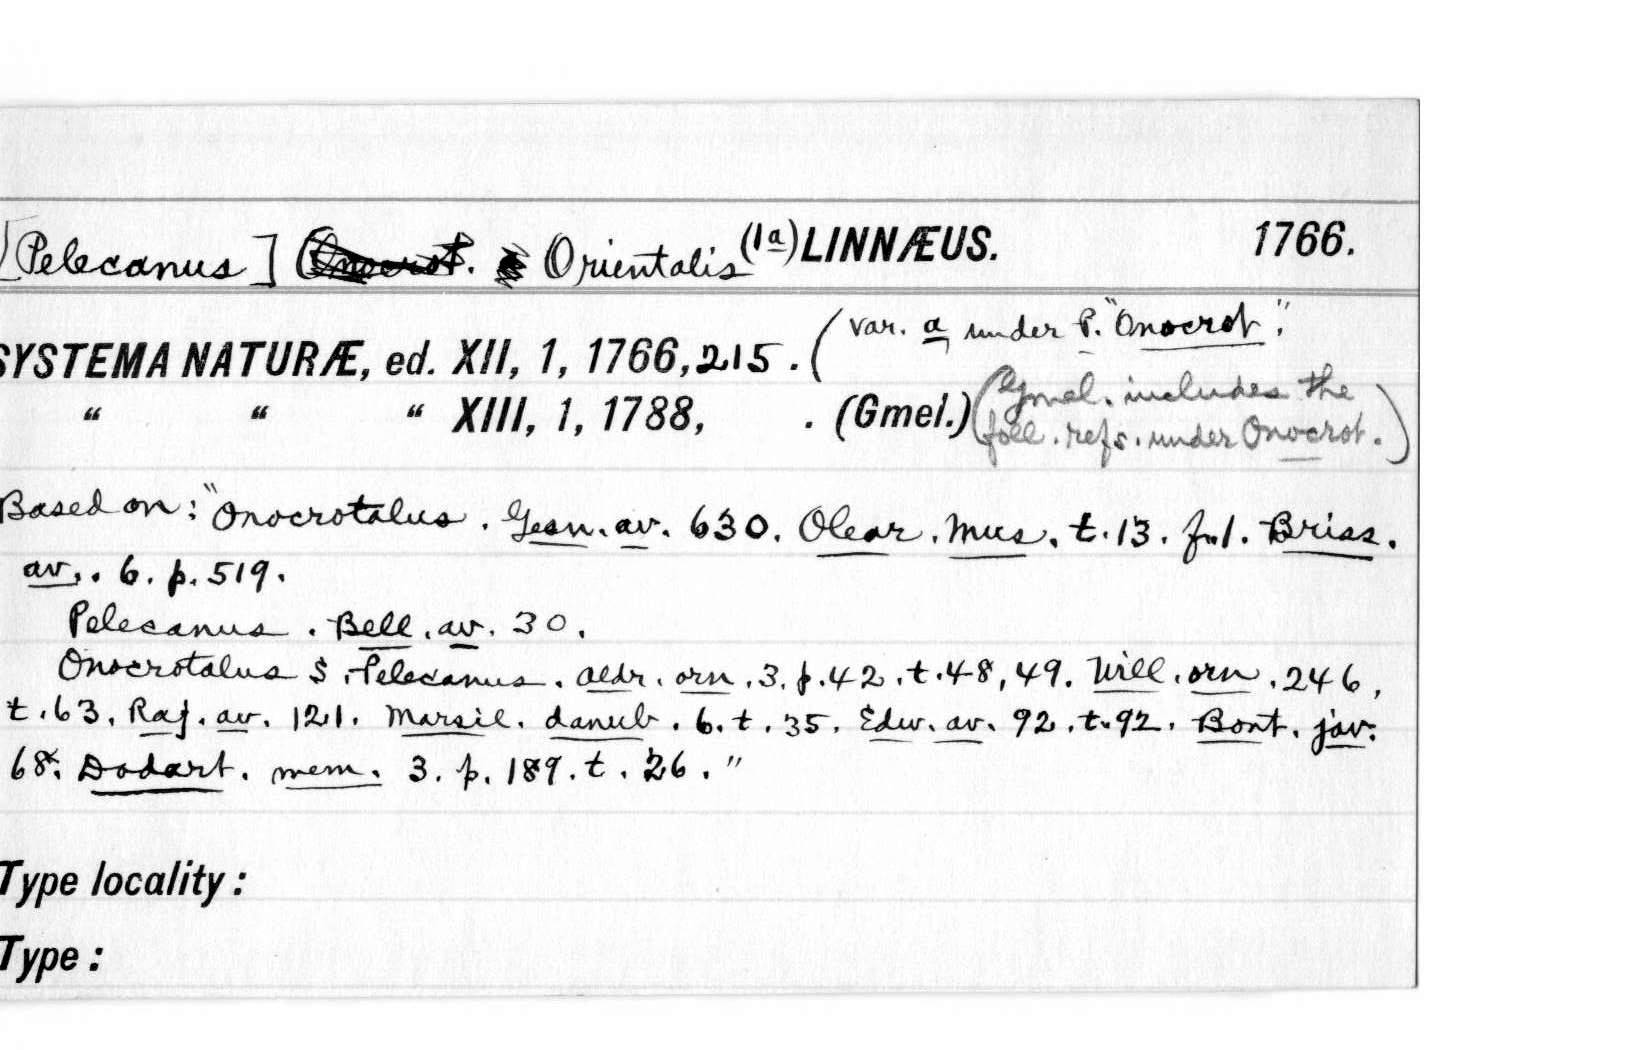 [Pelecanus] Onocrot. Orientalis (1a) LINNÆUS. 1766.
SYSTEMA NATURÆ, ed. XII, 1, 1766, 215. (var. a under P. "Onocrot".
“ “ “ XIII, 1, 1788, . (Gmel.) (Gmel. includes the
foll. refs. under Onocrot.)
Based on: "Onocrotalus. Gesn. av. 630. Olear. Mus. t. 13. f. 1. Briss.
av. 6. p. 519.
Pelecanus. Bell. av. 30.
Onocrotalus s. Pelecanus. aldr. orn. 3. p. 42. t. 48, 49. Will. orn. 246,
t. 63. Raj. av. 121. Marsil. danub. 6. t. 35. Edw. av. 92. t. 92. Bont. jav.
68. Dodart. mem. 3. p. 189. t. 26."
Type locality:
Type: